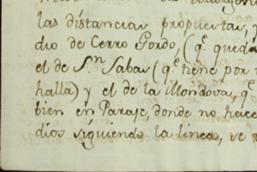 las distancias propuestas, y
dio de Cerro Gordo, (q.e queda
el de S.n Sabas (q.e tiene por
halla) y el de la Mondova, q.e
bien en Paraje, donde no hace
dios siguiendo la linea, se